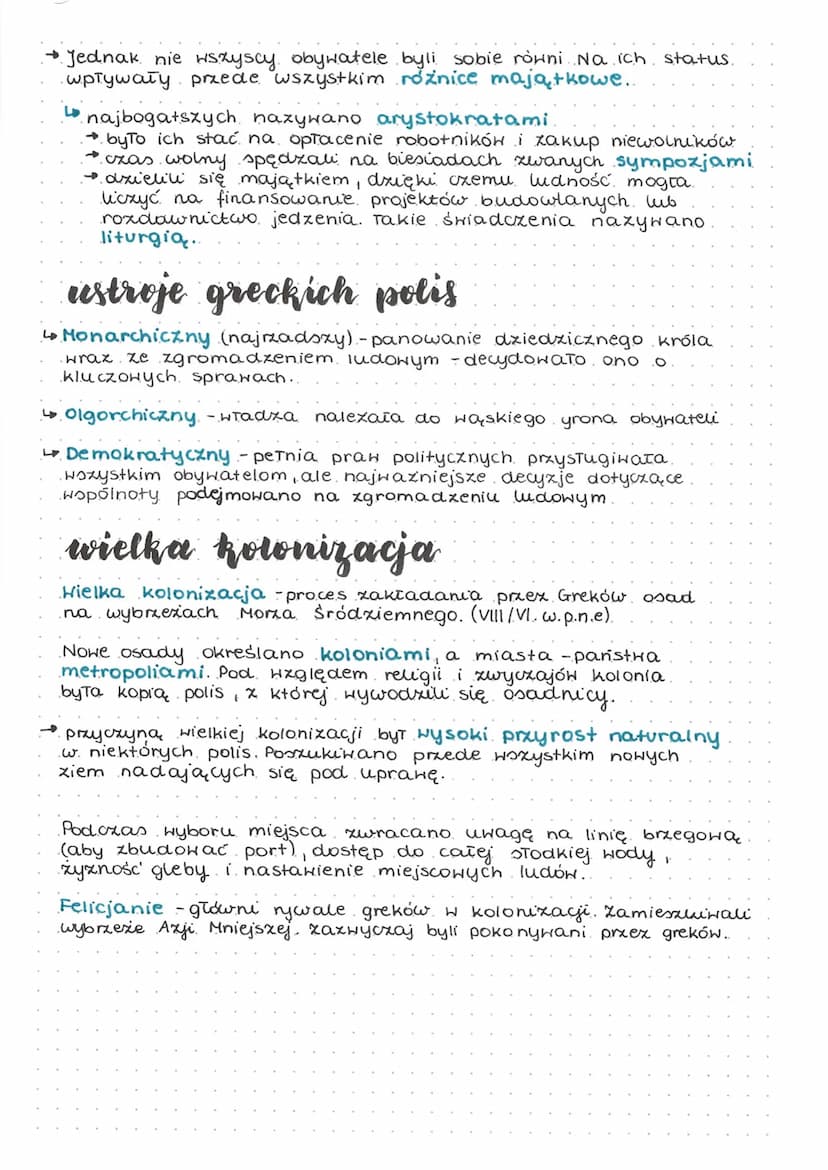 → Jednak nie wszyscy obywatele byli sobie równi. Na ich status
wpływały przede wszystkim różnice majątkowe.
↳ najbogatszych nazywano arystokratami
→ było ich stać na opłacenie robotników i zakup niewolników
→ czas wolny spędzali na biesiadach zwanych sympozjami
→ dzielili się majątkiem, dzięki czemu ludność mogła
liczyć na finansowanie projektów budowlanych lub
rozdawnictwo jedzenia. Takie świadczenia nazywano
liturgią.
ustroje greckich polis
↳ Monarchiczny (najrzadszy) - panowanie dziedzicznego króla
wraz ze zgromadzeniem ludowym - decydowało ono o
kluczowych sprawach.
↳ Olgorchiczny - władza należała do wąskiego grona obywateli
↳ Demokratyczny - pełnia praw politycznych przysługiwała
wszystkim obywatelom, ale najważniejsze decyzje dotyczące
wspólnoty podejmowano na zgromadzeniu ludowym.
wielka kolonizacja
Wielka kolonizacja - proces zakładania przez Greków osad
na wybrzeżach Morza Śródziemnego. (VIII/VI. w.p.n.e)
Nowe osady określano koloniami, a miasta - państwa
metropoliami. Pod względem religii i zwyczajów kolonia
była kopią polis, z której wywodzili się osadnicy.
→ przyczyną wielkiej kolonizacji był wysoki przyrost naturalny
w niektórych polis. Poszukiwano przede wszystkim nowych
ziem nadających się pod uprawę.
Podczas wyboru miejsca zwracano uwagę na linię brzegową
(aby zbudować port), dostęp do całej słodkiej wody,
żyzność gleby i nastawienie miejscowych ludów.
Felicjanie - główni rywale greków w kolonizacji. Zamieszkiwali
wybrzeże Azji Mniejszej. zazwyczaj byli pokonywani przez greków.